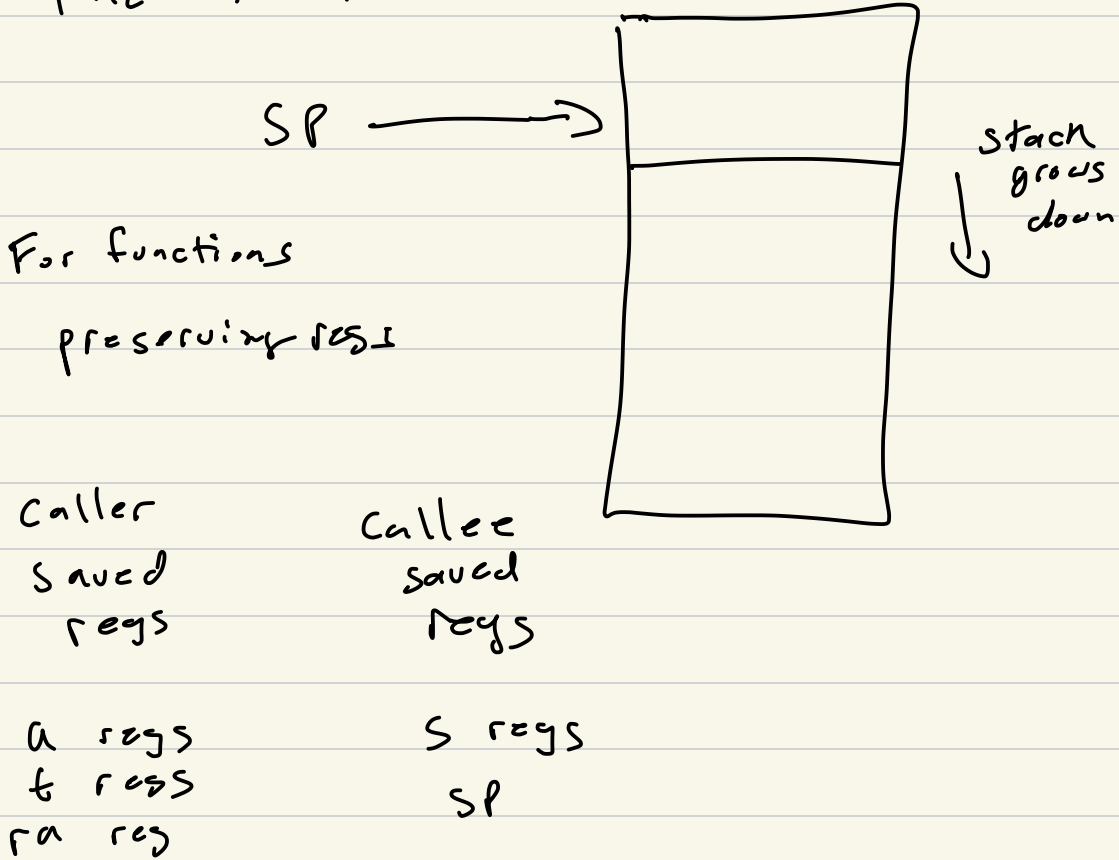 SP
stack
grows
down
For functions
preserving regs
Caller
saved
regs
Callee
saved
regs
a regs
t regs
ra reg
S regs
SP